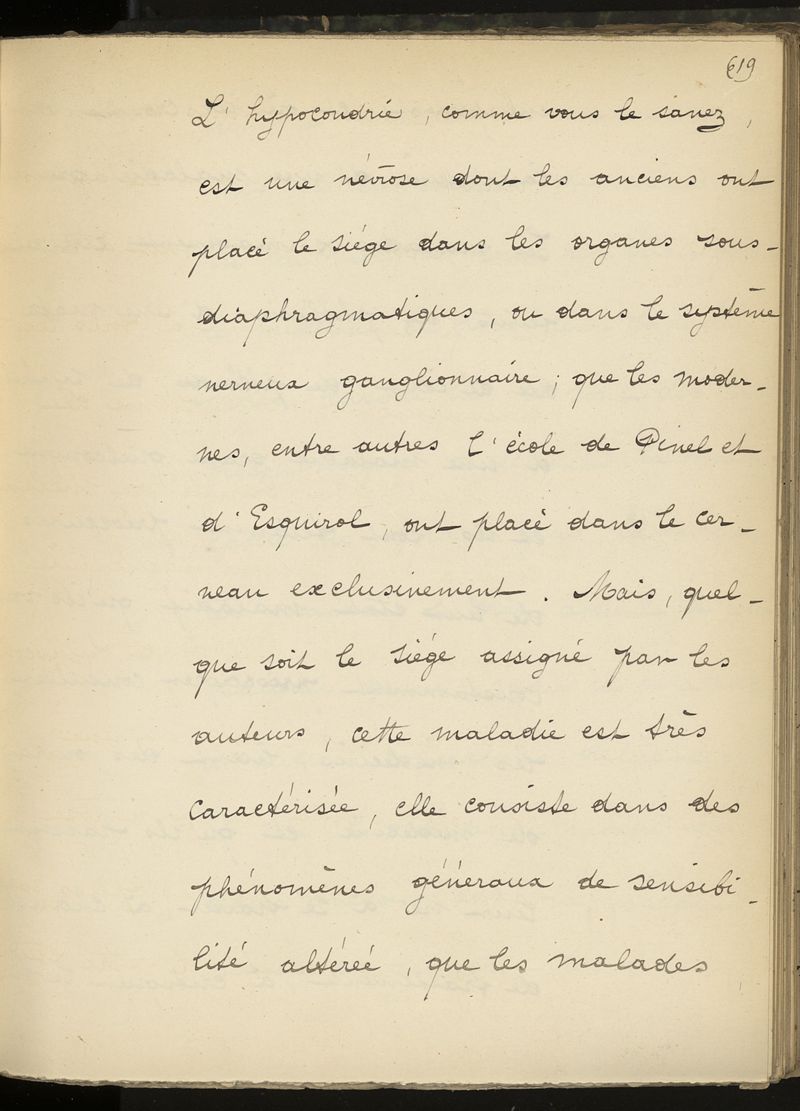 619
L' hypocondrie, comme vous le savez,
est une névrose dont les anciens ont
placé le siége dans les organes sous-
diaphragmatiques, ou dans le système
nerveux ganglionnaire ; que les moder-
nes, entre autres l'école de Pinel et
d'Esquirol, ont placé dans le cer-
veau exclusivement. Mais, quel-
que soit le siége assigné par les
auteurs, cette maladie est très
caractérisée, elle consiste dans des
phénomènes généraux de sensibi-
lité altérée, que les malades